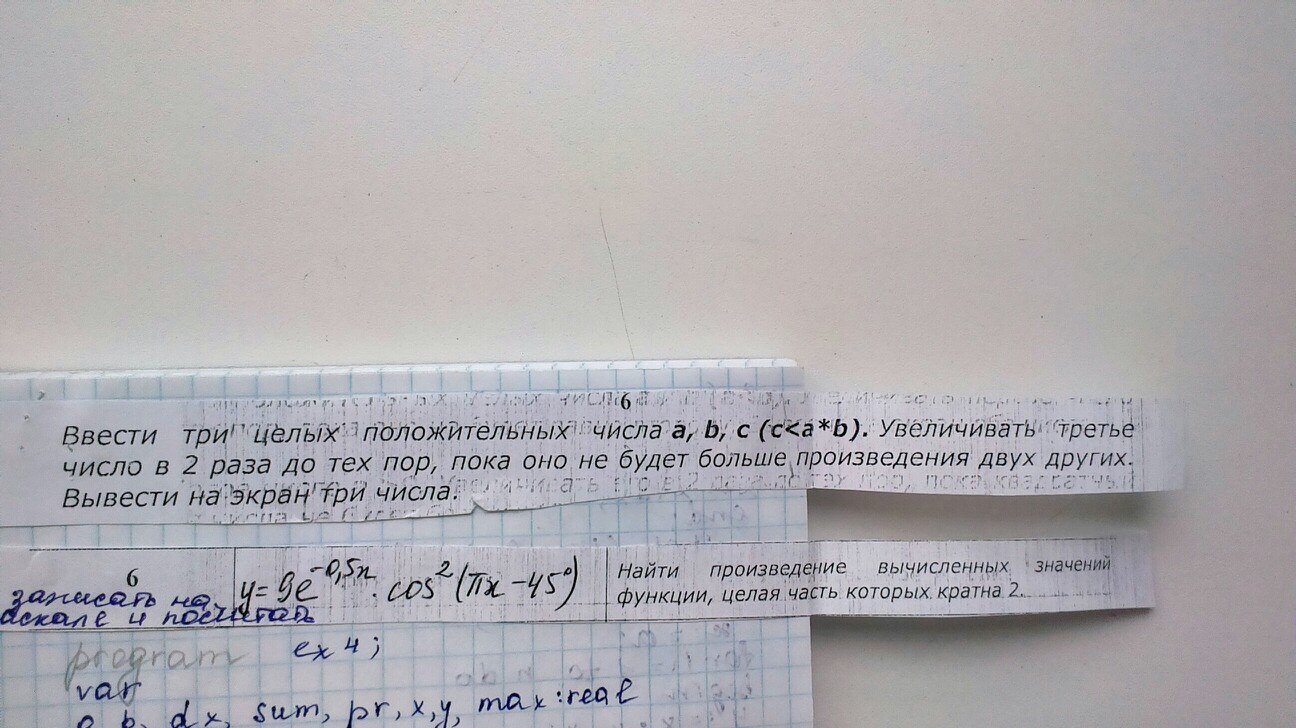 6
Ввести три целых положительных числа a, b, c (c<a*b). Увеличивать третье
число в 2 раза до тех пор, пока оно не будет больше произведения двух других.
Вывести на экран три числа.
6
записать на
аскале и посчитать
y=9e^-0,5x · cos²(πx-45°)
Найти произведение вычисленных значений
функции, целая часть которых кратна 2.
program ex4;
var
a, b, dx, sum, pr, x, y, max:real